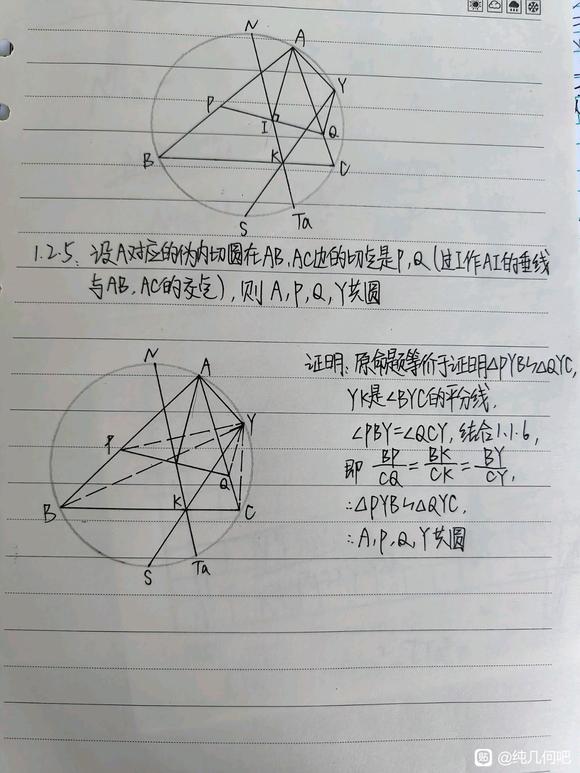 N
A
Y
P
I
Q
B
K
C
S
Ta
1.2.5. 设A对应的伪内切圆在AB, AC边的切点是P, Q (过I作AI的垂线
与AB, AC的交点), 则 A, P, Q, Y共圆
N
A
Y
P
Q
B
K
C
S
Ta
证明: 原命题等价于证明△PYB∽△QYC,
YK是∠BYC的平分线.
∠PBY=∠QCY, 结合1.1.6,
即 BP/CQ = BK/CK = BY/CY,
∴△PYB∽△QYC.
∴A, P, Q, Y共圆
贴 @纯几何吧